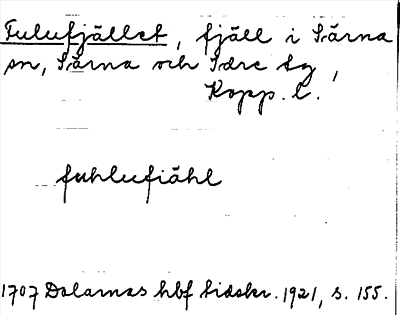 Fulufjället, fjäll i Särna
sn, Särna och Idre tg,
Kopp. l.
fuhlufiähl
1707 Dalarnas hbf tidskr. 1921, s. 155.